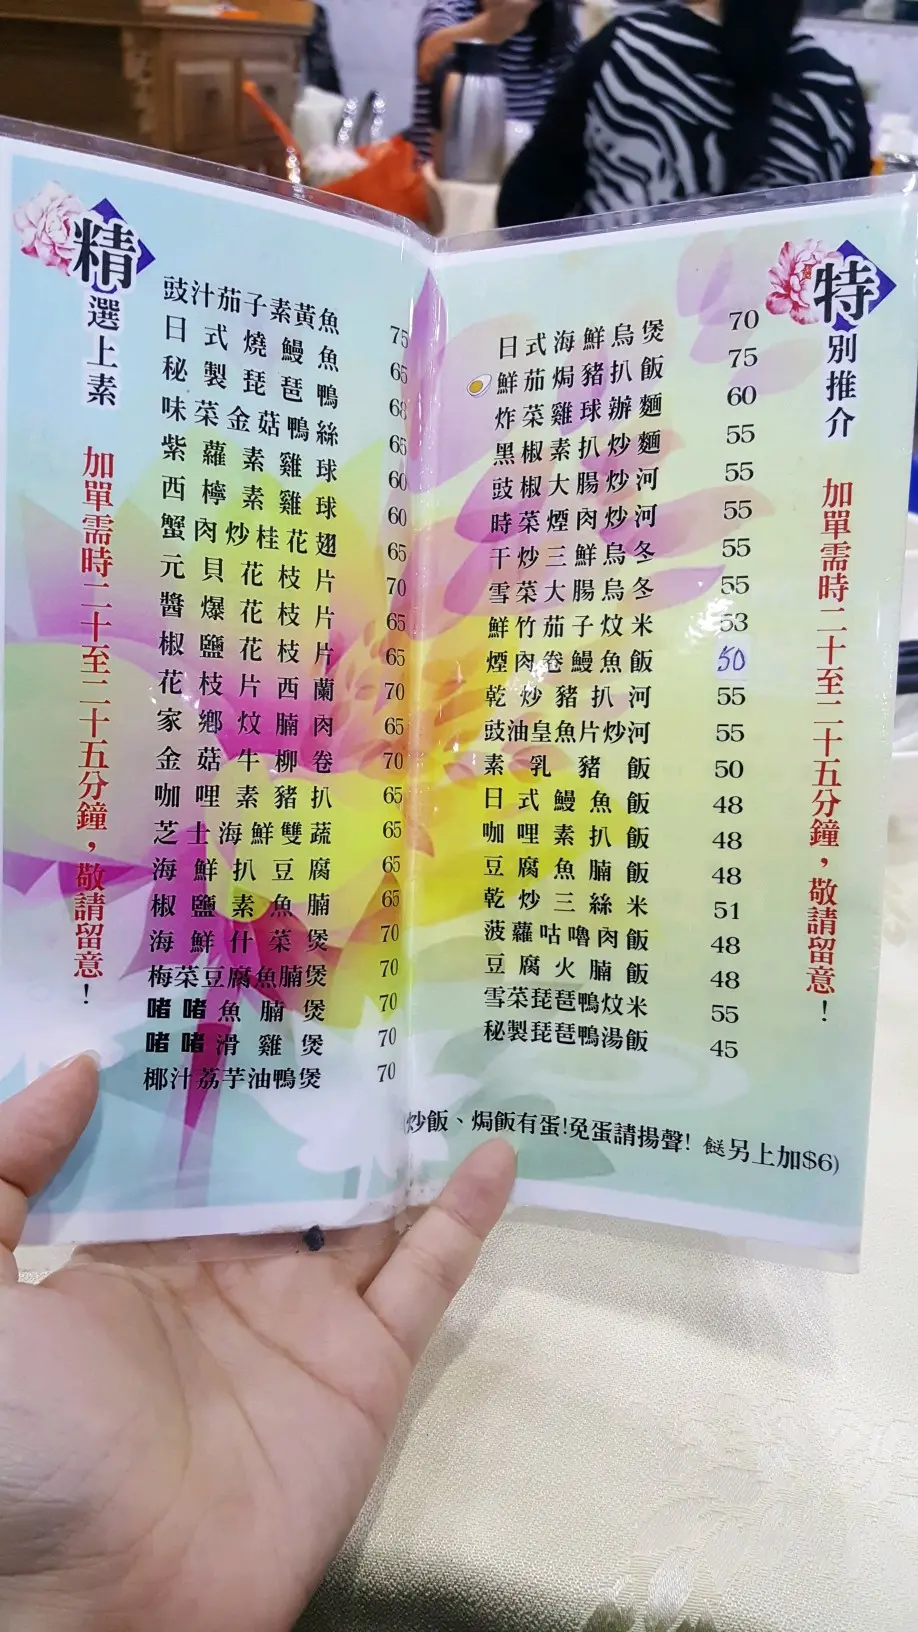 精選上素
加單需時二十至二十五分鐘，敬請留意！
豉汁茄子素黃魚 75
日式燒鰻魚 65
秘製琵琶鴨 68
味菜金菇鴨絲 65
紫蘿素雞球 60
西檸素雞球 60
蟹肉炒桂花翅 65
元貝花枝片 70
醬爆花枝片 65
椒鹽花枝片 65
花枝片西蘭 70
家鄉炆腩肉 65
金菇牛柳卷 70
咖哩素豬扒 65
芝士海鮮雙蔬 65
海鮮扒豆腐 65
椒鹽素魚腩 65
海鮮什菜煲 70
梅菜豆腐魚腩煲 70
啫啫魚腩煲 70
啫啫滑雞煲 70
椰汁荔芋油鴨煲 70
特別推介
加單需時二十至二十五分鐘，敬請留意！
日式海鮮烏煲 70
鮮茄焗豬扒飯 75
炸菜雞球辦麵 60
黑椒素扒炒麵 55
豉椒大腸炒河 55
時菜煙肉炒河 55
干炒三鮮烏冬 55
雪菜大腸烏冬 55
鮮竹茄子炆米 53
煙肉卷鰻魚飯 50
乾炒豬扒河 55
豉油皇魚片炒河 55
素乳豬飯 50
日式鰻魚飯 48
咖哩素扒飯 48
豆腐魚腩飯 48
乾炒三絲米 51
菠蘿咕嚕肉飯 48
豆腐火腩飯 48
雪菜琵琶鴨炆米 55
秘製琵琶鴨湯飯 45
炒飯、焗飯有蛋!免蛋請揚聲! 餸另上加$6)